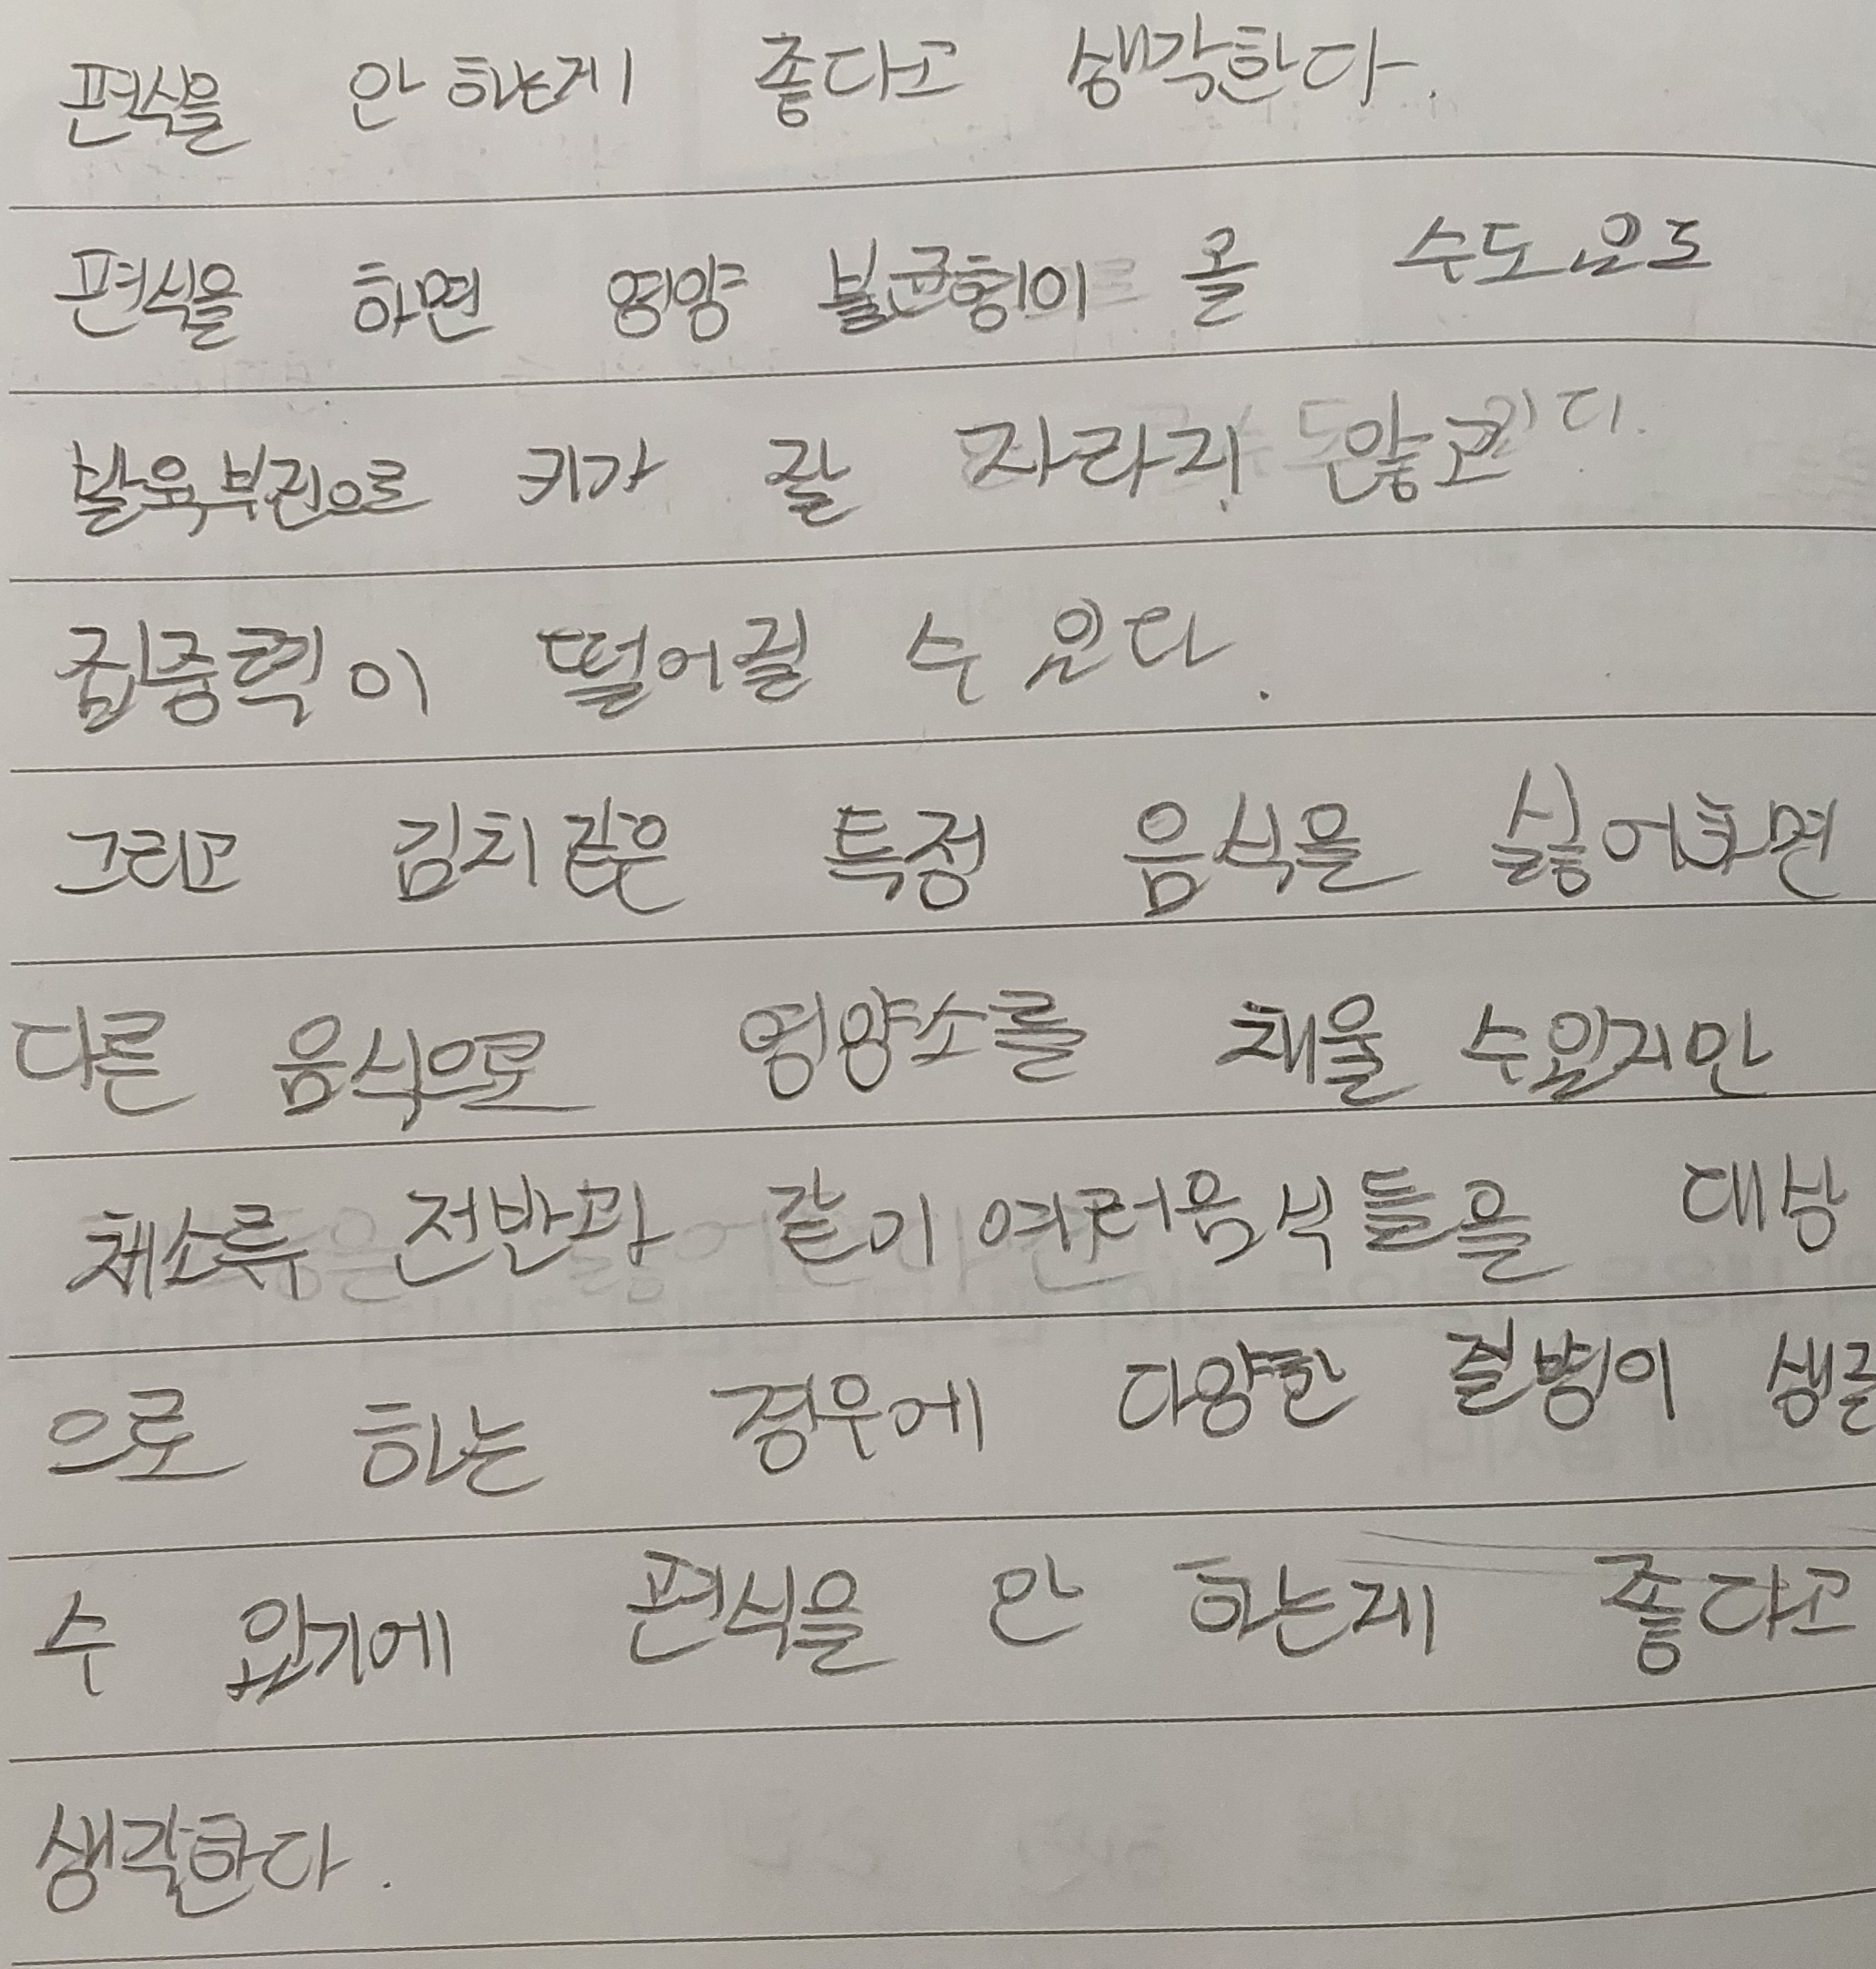 편식을 안 하는게 좋다고 생각한다.
편식을 하면 영양 불균형이 올 수도 있고
발육부진으로 키가 잘 자라지 않고
집중력이 떨어질 수 있다.
그리고 김치같은 특정 음식을 싫어하면
다른 음식으로 영양소를 채울 수있지만
채소류 전반과 같이 여러음식들을 대상
으로 하는 경우에 다양한 질병이 생길
수 있기에 편식을 안 하는게 좋다고
생각한다.